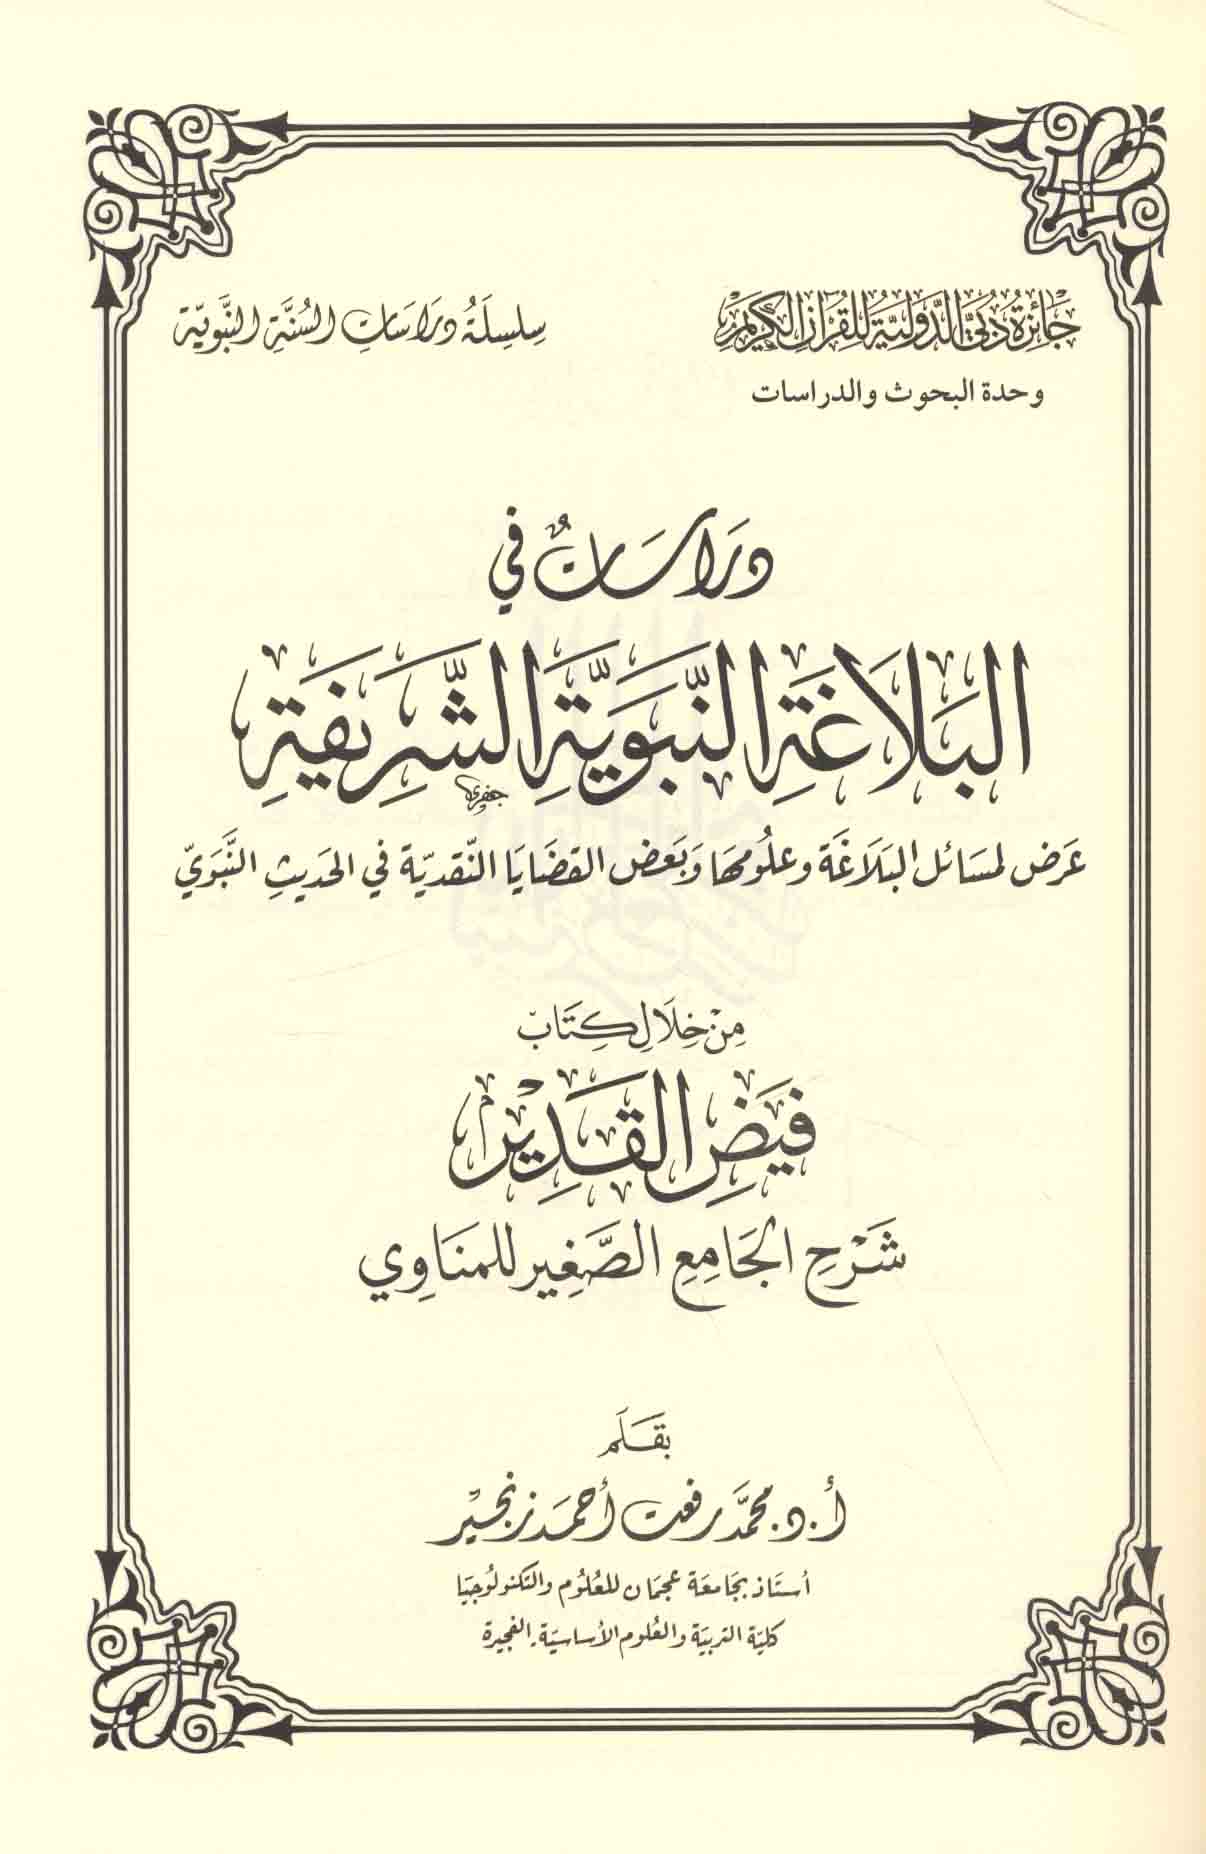 جَائِزَةُ دُبَيِّ الدَّوْلِيَّةُ لِلْقُرْآنِ الْكَرِيمِ
وحدة البحوث والدراسات
سِلسِلَةُ دِرَاسَاتِ السُّنَّةِ النَّبَوِيَّةِ
دِرَاسَاتٌ فِي
البَلَاغَةِ النَّبَوِيَّةِ الشَّرِيفَةِ
عَرَض لمسَائل البَلَاغَة وعلُومهَا وَبَعض القضَايَا النّقديّة في الحَديثِ النَّبَويّ
مِنْ خِلَالِ كِتَابِ
فَيْضِ القَدِيْرِ
شَرْحِ الجَامِعِ الصَّغِيرِ للمنَاوِي
بقَلَم
أ.د. محمَّد رفعت أحمَد زنجير
أستَاذ بجَامعَة عجمَان للعُلوُم والتكنولُوجيَا
كليّة التربيَة والعُلوم الأسَاسيّة ـ الفجيرة